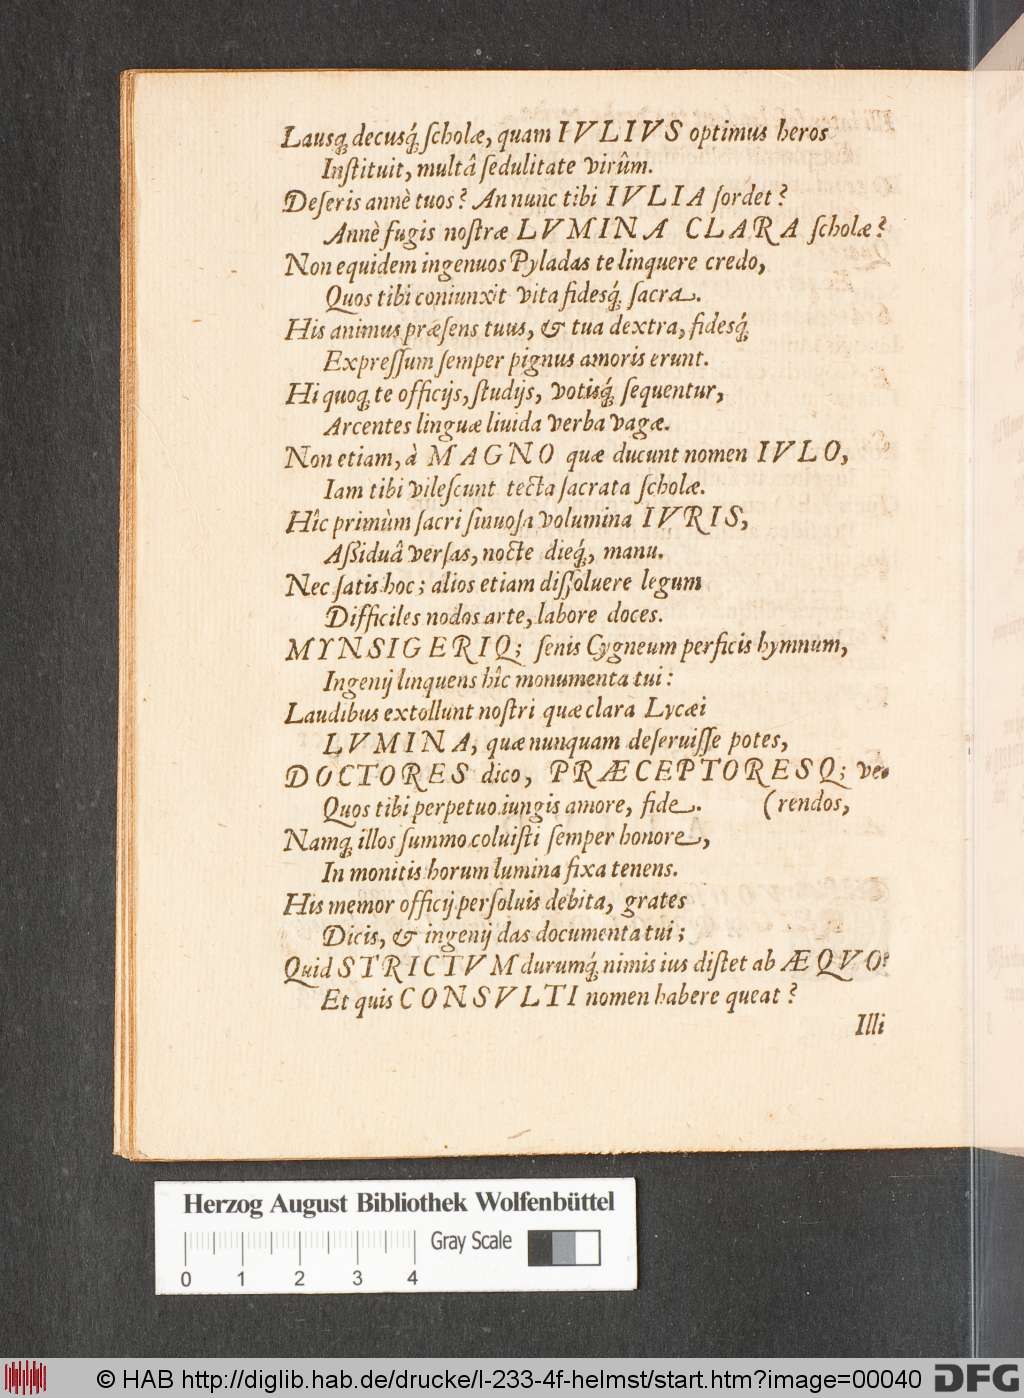 Lausq́; decusq́; ſcholæ, quam IVLIVS optimus heros
Inſtituit, multâ ſedulitate virûm.
Deſeris annè tuos? An nunc tibi IVLIA ſordet?
Annè fugis noſtræ LVMINA CLARA ſcholæ?
Non equidem ingenuos Pyladas te linquere credo,
Quos tibi coniunxit vita fidesq́; ſacra.
His animus præſens tuus, & tua dextra, fidesq́;
Expreſſum ſemper pignus amoris erunt.
Hi quoq; te officijs, ſtudijs, votisq́; ſequentur,
Arcentes linguæ liuida verba vagæ.
Non etiam, à MAGNO quæ ducunt nomen IVLO,
Iam tibi vileſcunt tecta ſacrata ſcholæ.
Hîc primùm ſacri ſinuoſa volumina IVRIS,
Aſsiduâ verſas, nocte dieq́;, manu.
Nec ſatis hoc; alios etiam diſſoluere legum
Difficiles nodos arte, labore doces.
MYNSIGERIQ; ſenis Cygneum perficis hymnum,
Ingenij linquens hîc monumenta tui:
Laudibus extollunt noſtri quæ clara Lycæi
LVMINA, quæ nunquam deſeruiſſe potes,
DOCTORES dico, PRÆCEPTORESQ; ve-
Quos tibi perpetuo iungis amore, fide. (rendos,
Namq; illos ſummo coluiſti ſemper honore,
In monitis horum lumina fixa tenens.
His memor officij perſoluis debita, grates
Dicis, & ingenij das documenta tui;
Quid STRICTVM durumq́; nimis ius diſtet ab ÆQVO?
Et quis CONSVLTI nomen habere queat?
Illi
Herzog August Bibliothek Wolfenbüttel
Gray Scale
0 1 2 3 4
© HAB http://diglib.hab.de/drucke/l-233-4f-helmst/start.htm?image=00040
DFG